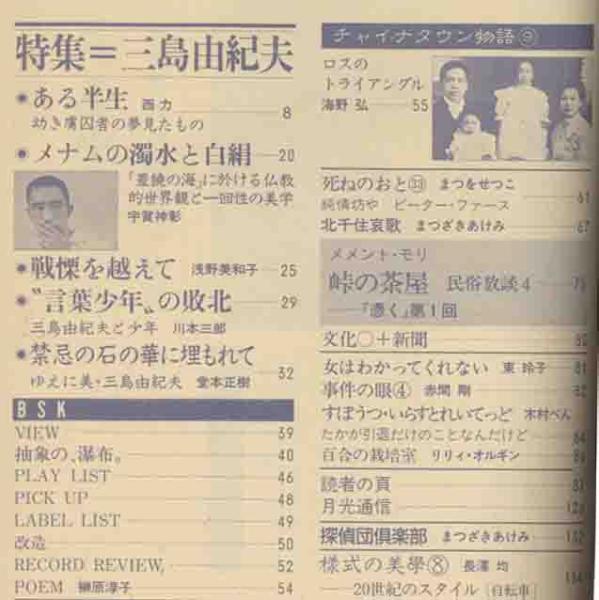 特集=三島由紀夫
●ある半生 西力 8
幼き虜囚者の夢見たもの
●メナムの濁水と白絹 20
「豊饒の海」に於ける仏教
的世界観と一回性の美学
宇賀神彰
●戦慄を越えて 浅野美和子 25
●〝言葉少年〟の敗北 29
三島由紀夫と少年 川本三郎
●禁忌の石の華に埋もれて
ゆえに美・三島由紀夫 堂本正樹 32
BSK
VIEW 39
抽象の、瀑布。 40
PLAY LIST 46
PICK UP 48
LABEL LIST 49
改造 50
RECORD REVIEW, 52
POEM 榊原淳子 54
チャイナタウン物語⑨
ロスの
トライアングル
海野 弘 55
死ねのおと㉝ まつをせつこ 61
純情坊や ピーター・ファース
北千住哀歌 まつざきあけみ 67
メメント・モリ
峠の茶屋 民俗放談4
『憑く』第1回
文化〇+新聞
女はわかってくれない 東 玲子 81
事件の眼④ 赤間 剛 82
すぽうつ・いらすとれいてっど 木村べん
たかが引退だけのことなんだけど 84
百合の栽培室 リリィ・オルギン
読者の頁
月光通信
探偵団倶楽部 まつざきあけみ
様式の美學⑧ 長澤 均
20世紀のスタイル[自転車]